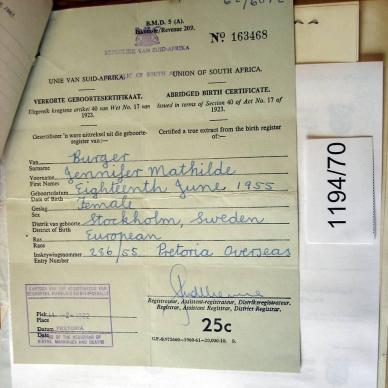 B.M.D. 5 (A).
Inkomste/Revenue 209.
REPUBLIEK VAN SUID-AFRIKA
Nº 163468
UNIE VAN SUID-AFRIKA.
UNION OF SOUTH AFRICA.
VERKORTE GEBOORTESERTIFIKAAT.
ABRIDGED BIRTH CERTIFICATE.
Uitgereik kragtens artikel 40 van Wet No. 17 van 1923.
Issued in terms of Section 40 of Act No. 17 of 1923.
Gesertifiseer 'n ware uittreksel uit die geboorte-register van:—
Certified a true extract from the birth register of:—
Van
Surname
Burger
Voorname
First Names
Jennifer Mathilde
Geboortedatum
Date of Birth
Eighteenth June 1955
Geslag
Sex
Female
Distrik van geboorte
District of Birth
Stockholm, Sweden
Ras
Race
European
Inskrywingsnommer
Entry Number
286/55 Pretoria Overseas
Registrateur, Assistent-registrateur, Distriksregistrateur.
Registrar, Assistant Registrar, District Registrar.
Plek
Place
Datum
Date
PRETORIA
25c
1194/70